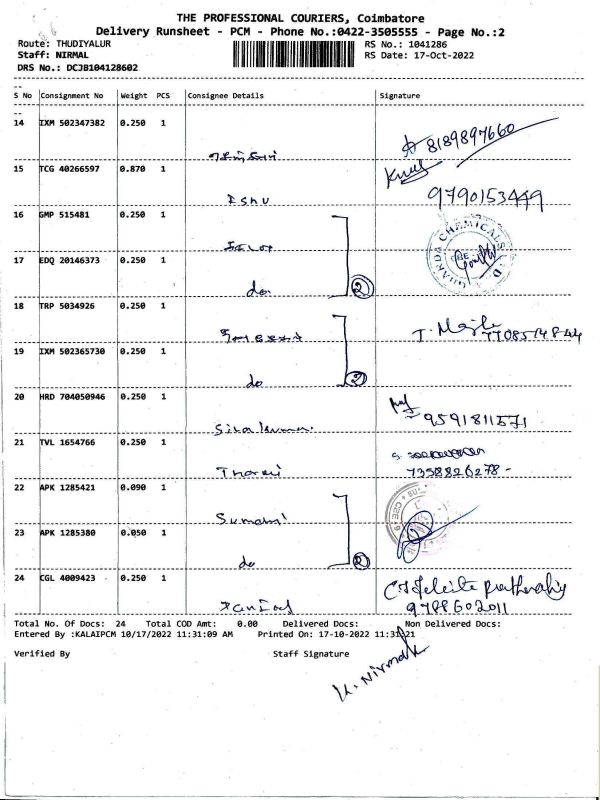 THE PROFESSIONAL COURIERS, Coimbatore
Delivery Runsheet - PCM - Phone No.:0422-3505555 - Page No.:2
Route: THUDIYALUR
RS No.: 1041286
Staff: NIRMAL
RS Date: 17-Oct-2022
DRS No.: DCJB104128602
S No Consignment No Weight PCS Consignee Details Signature
14 IXM 502347382 0.250 1
8189897660
15 TCG 40266597 0.870 1
Eshu 9790153449
16 GMP 515481 0.250 1
GHARDA CHEMICALS LTD.
17 EDQ 20146373 0.250 1
do 2
18 TRP 5034926 0.250 1
19 IXM 502365730 0.250 1
do 2
20 HRD 704050946 0.250 1
9591811571
21 TVL 1654766 0.250 1
Tharani 7358826278 -
22 APK 1285421 0.090 1
23 APK 1285380 0.050 1
do 2
24 CGL 4009423 0.250 1
Total No. Of Docs: 24 Total COD Amt: 0.00 Delivered Docs: Non Delivered Docs:
Entered By :KALAIPCM 10/17/2022 11:31:09 AM Printed On: 17-10-2022 11:31:21
Verified By Staff Signature
K. Nirmal